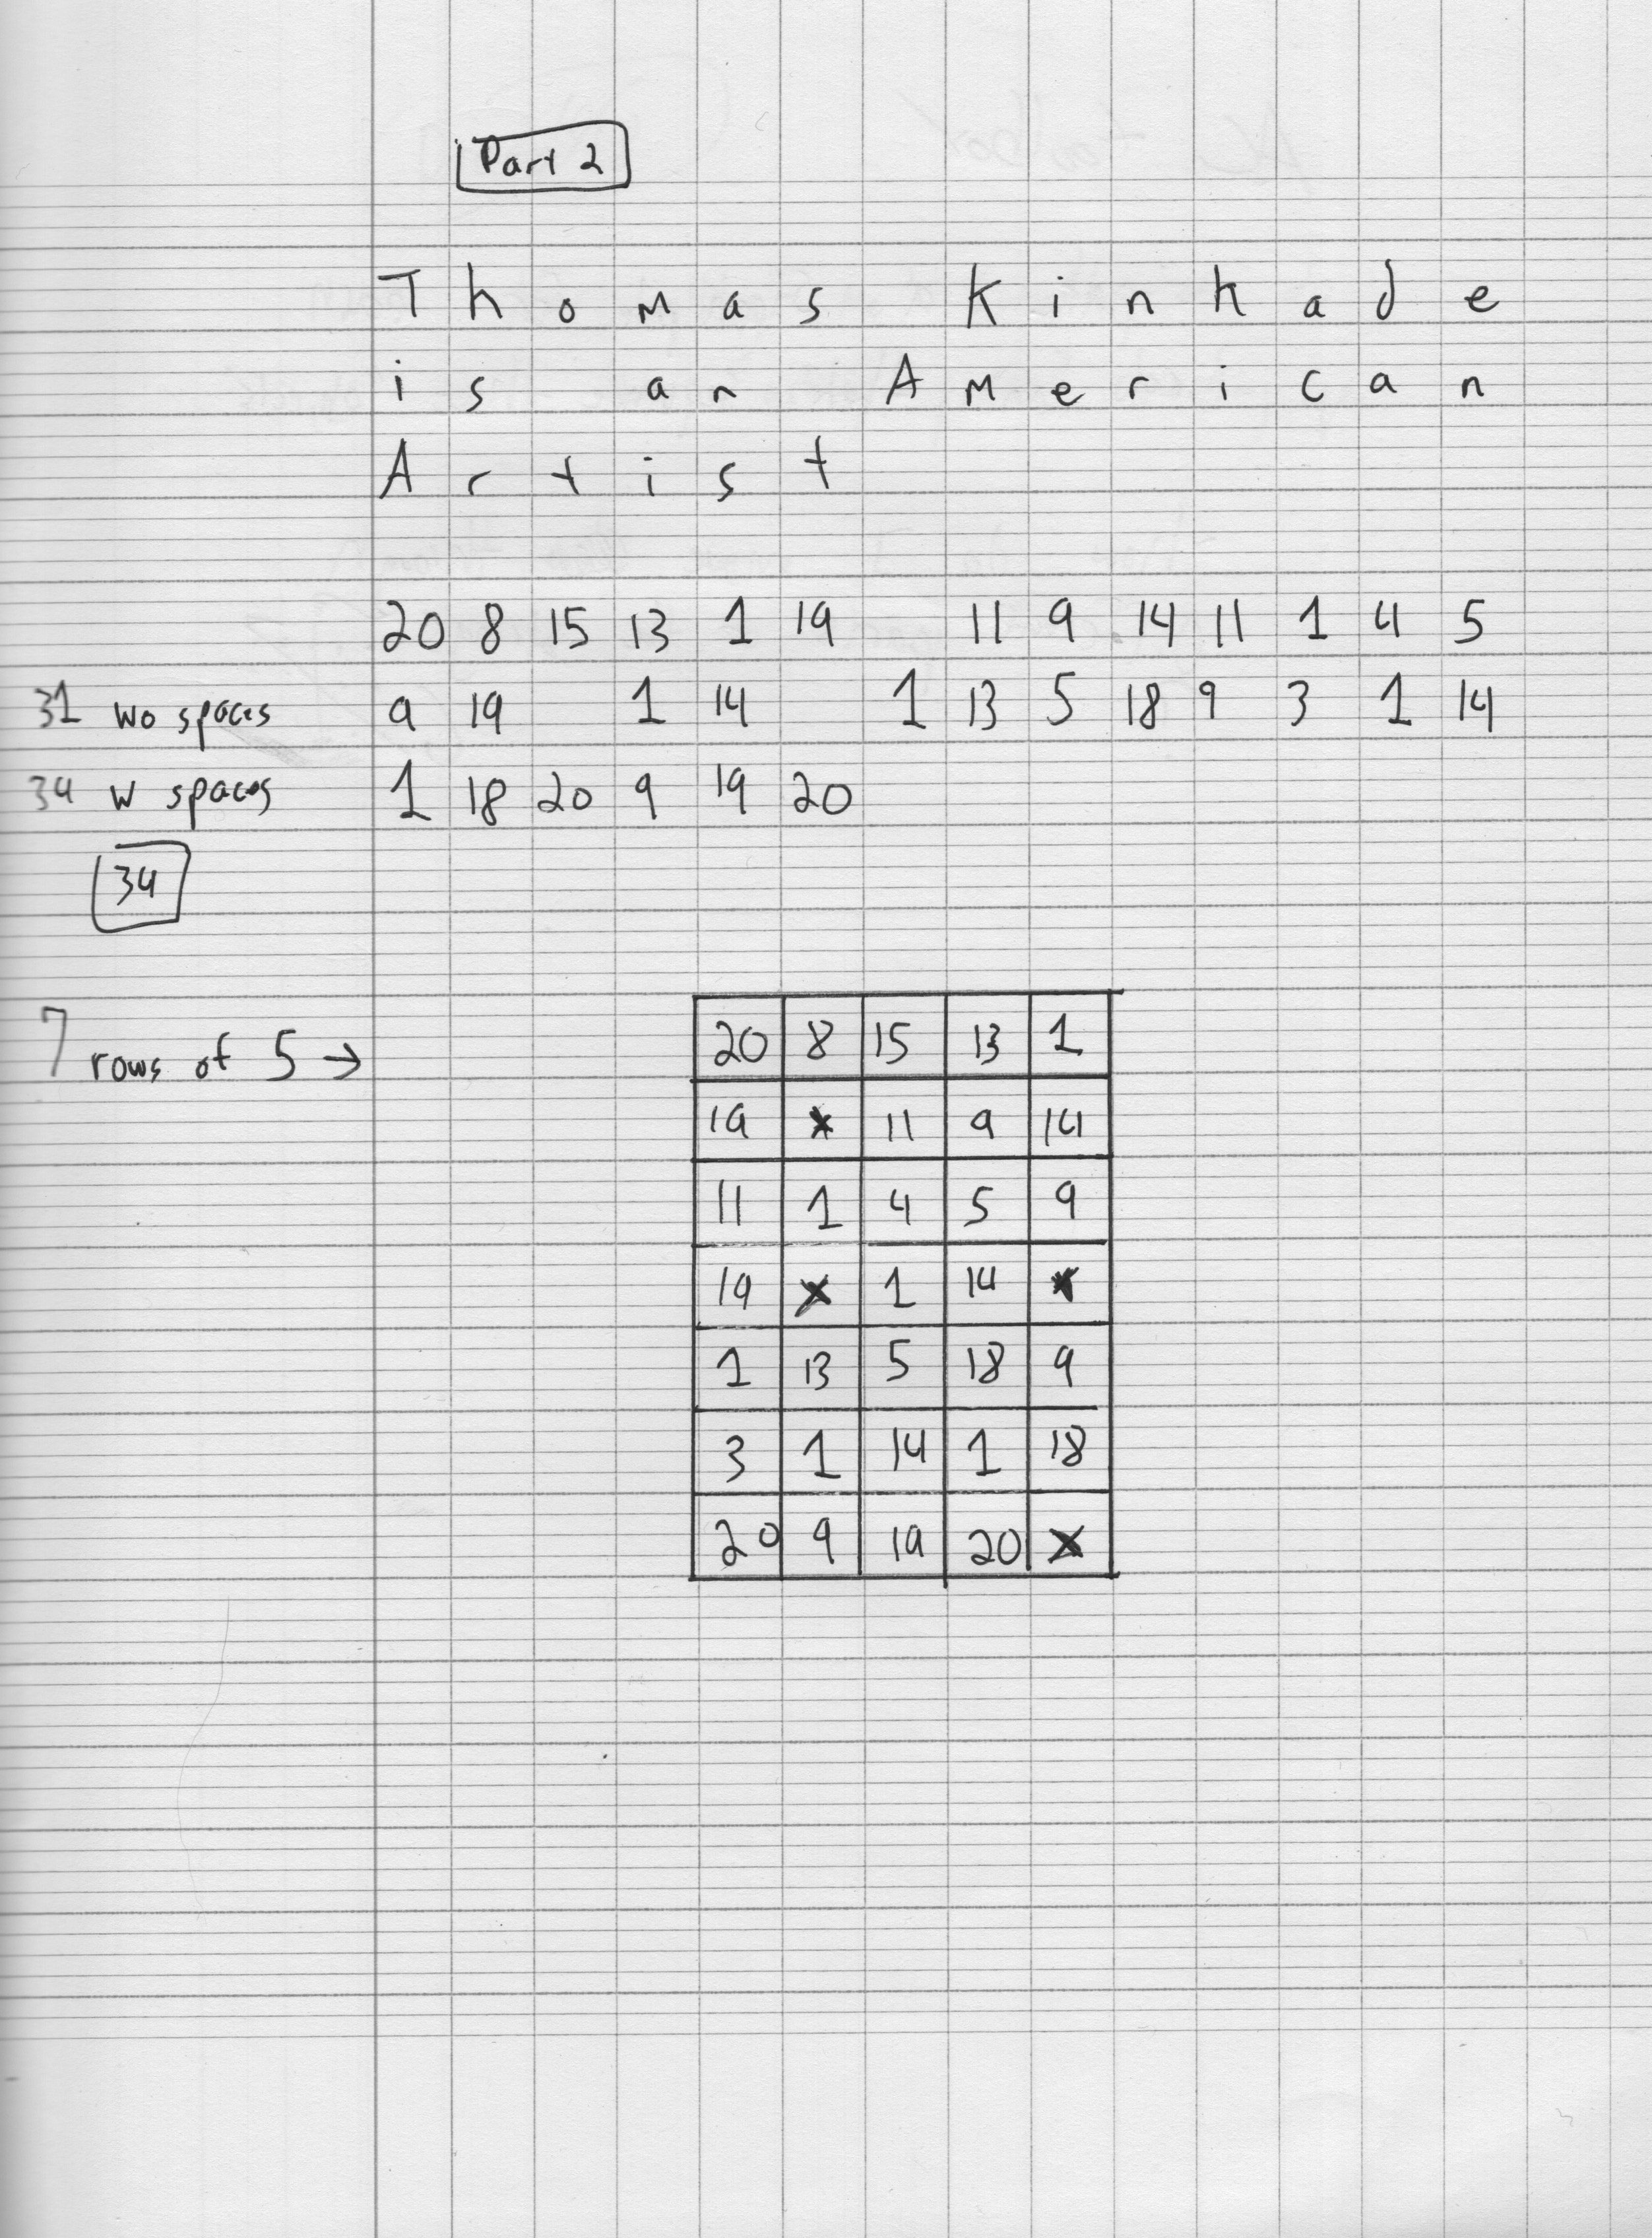 Part 2
Thomas Kinkade
is an American
Artist
20 8 15 13 1 19 11 9 14 11 1 4 5
31 wo spaces 9 19 1 14 1 13 5 18 9 3 1 14
34 w spaces 1 18 20 9 19 20
34
7 rows of 5 →
20 8 15 13 1
19 * 11 9 14
11 1 4 5 9
19 * 1 14 *
1 13 5 18 9
3 1 14 1 18
20 9 19 20 *